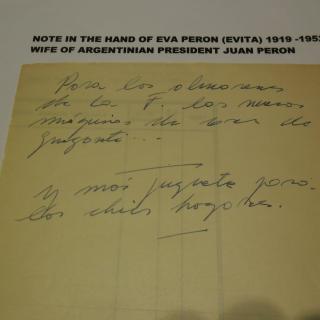 NOTE IN THE HAND OF EVA PERON (EVITA) 1919 -1953
WIFE OF ARGENTINIAN PRESIDENT JUAN PERON
Para los almacenes
de la F. las nuevas
máquinas de coser de
y más juguete para
los hogares.